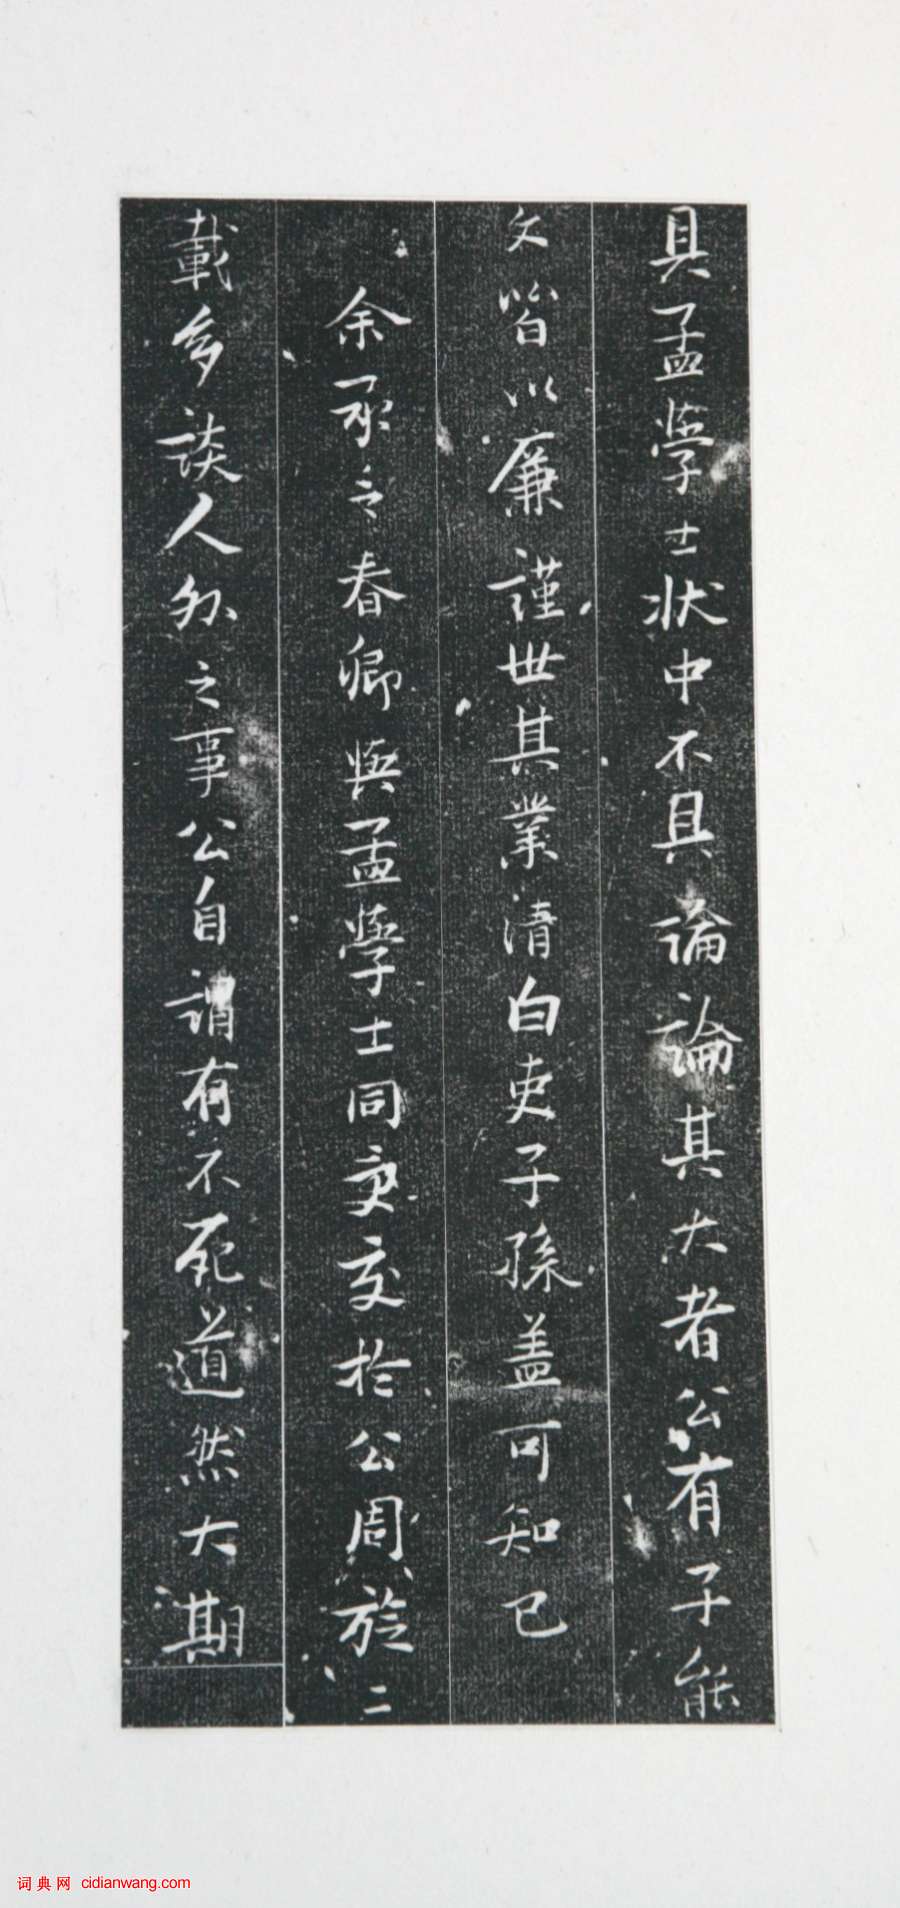 具孟學士狀中不具論論其大者公有子能
文皆以廉謹世其業清白吏子孫盖可知已
余承乏春卿與孟學士同更交於公周旋二
載多談人外之事公自謂有不死道然大期
词典网 cidianwang.com